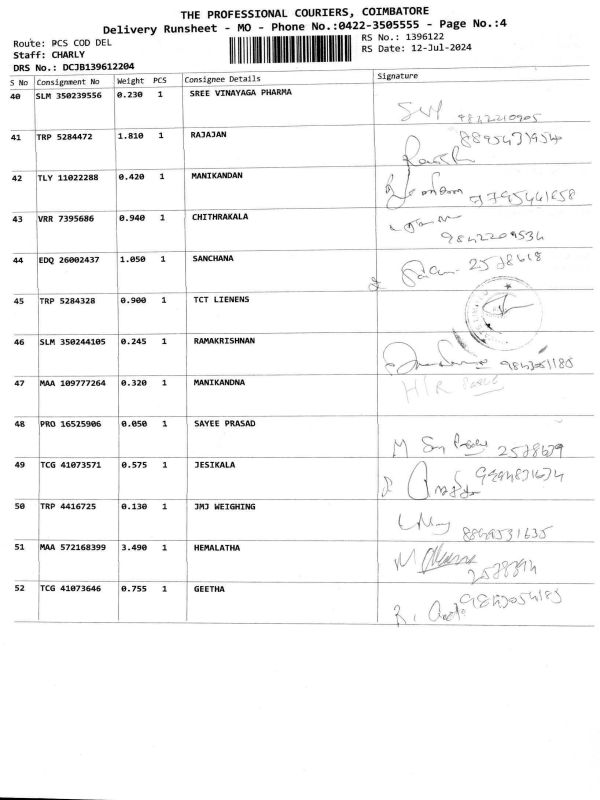 THE PROFESSIONAL COURIERS, COIMBATORE
Delivery Runsheet - MO - Phone No.:0422-3505555 - Page No.:4
Route: PCS COD DEL
Staff: CHARLY
DRS No.: DCJB139612204
RS No.: 1396122
RS Date: 12-Jul-2024
S No Consignment No Weight PCS Consignee Details Signature
40 SLM 350239556 0.230 1 SREE VINAYAGA PHARMA
41 TRP 5284472 1.810 1 RAJAJAN
8895431954
42 TLY 11022288 0.420 1 MANIKANDAN
7795441658
43 VRR 7395686 0.940 1 CHITHRAKALA
9842209534
44 EDQ 26002437 1.050 1 SANCHANA
2578618
45 TRP 5284328 0.900 1 TCT LIENENS
46 SLM 350244105 0.245 1 RAMAKRISHNAN
47 MAA 109777264 0.320 1 MANIKANDNA
H/R
48 PRO 16525906 0.050 1 SAYEE PRASAD
49 TCG 41073571 0.575 1 JESIKALA
50 TRP 4416725 0.130 1 JMJ WEIGHING
51 MAA 572168399 3.490 1 HEMALATHA
52 TCG 41073646 0.755 1 GEETHA